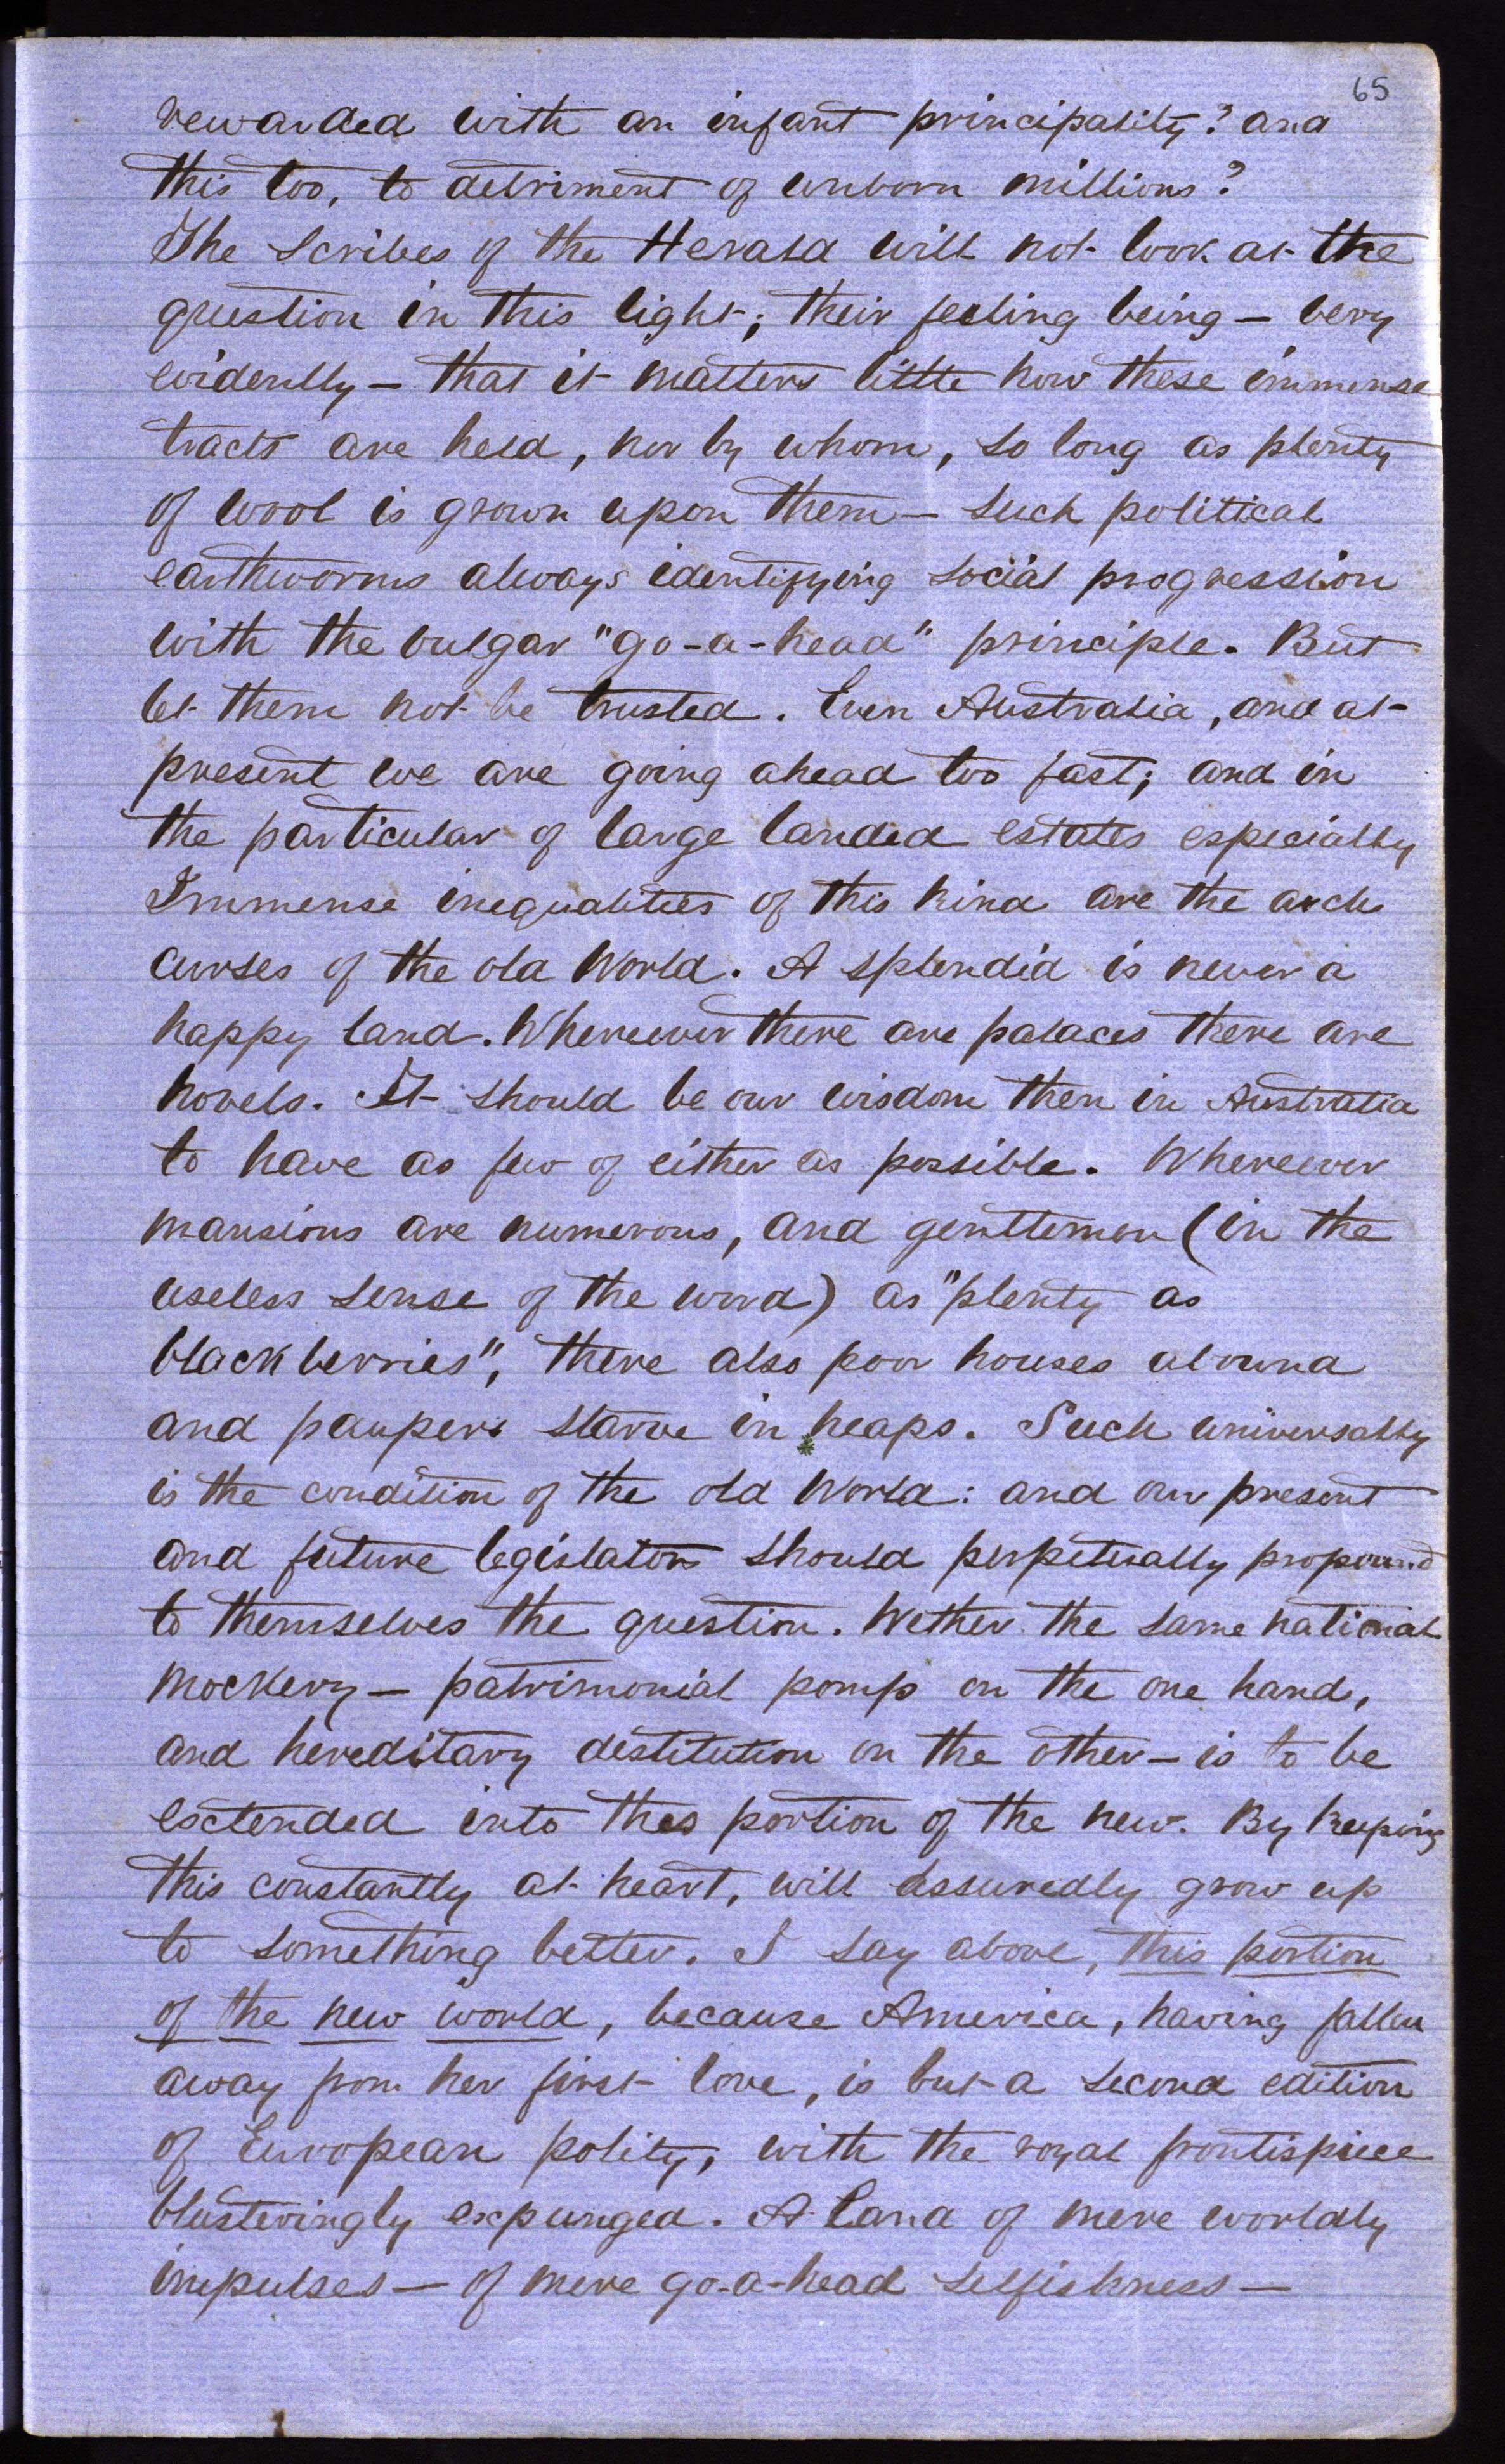 65
rewarded with an infant principality? and
this too, to detriment of unborn millions?
The Scribes of the Herald will not look at the
question in this light; their feeling being — very
evidently — that it matters little how these immense
tracts are held, nor by whom, so long as plenty
of wool is grown upon them — such political
earthworms always identifying social progression
with the vulgar "go-a-head" principle. But
let them not be trusted. Even Australia, and at
present we are going ahead too fast; and in
the particular of large landed estates especially
Immense inequalities of this kind are the arch
curses of the old World. A splendid is never a
happy land. Whereever there are palaces there are
hovels. It should be our wisdom then in Australia
to have as few of either as possible. Whereever
mansions are numerous, and gentlemen (in the
useless sense of the word) as "plenty as
blackberries", there also poor houses abound
and paupers starve in heaps. Such universally
is the condition of the old World: and our present
and future legislators should perpetually propound
to themselves the question. Wether the same national
mockery — patrimonial pomp on the one hand,
and hereditary destitution on the other — is to be
extended into this portion of the new. By keeping
this constantly at heart, will assuredly grow up
to something better. I say above, this portion
of the new world, because America, having fallen
away from her first love, is but a second edition
of European polity, with the royal frontispiece
blusteringly expunged. A Land of mere worldly
impulses — of mere go-a-head selfishness —